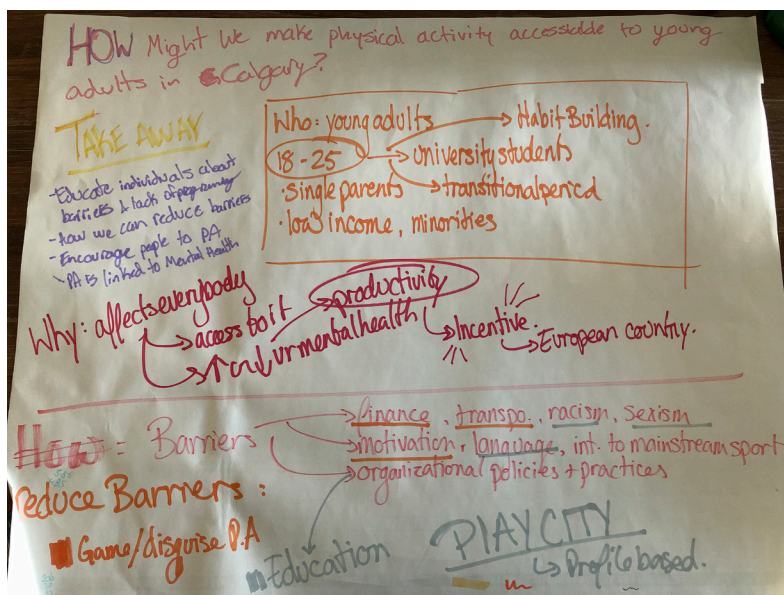 HOW Might We make physical activity accessable to young
adults in Calgary?
TAKE AWAY
- Educate individuals about
barriers & lack of
- How we can reduce barriers
- Encourage people to PA
- PA is linked to Mental Health
Who: young adults → Habit Building.
18-25 → university students
· Single parents → transitional period
· low income, minorities
Why: affects everybody
→ access to it
→ ↑ or ↓ ur mental health
→ productivity
→ Incentive.
→ European country.
How = Barriers → finance, transpo., racism, sexism
→ motivation, language, int. to mainstream sport
→ organizational policies + practices
reduce Barriers:
Game/disguise P.A
Education
PLAY CITY
↳ Profile based.